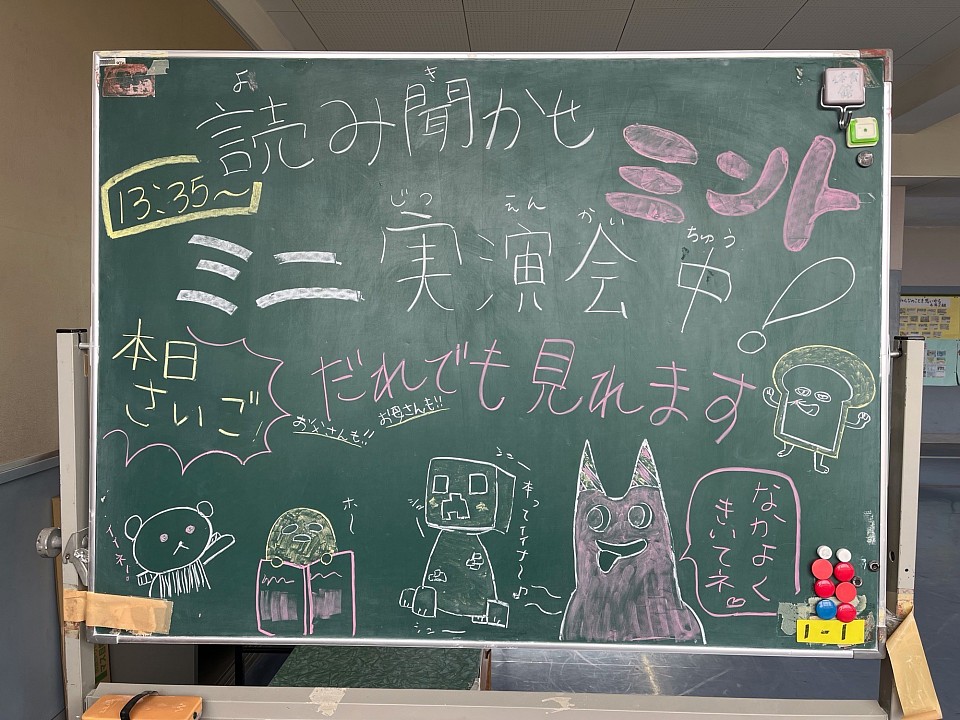 よ
き
読み聞かせ
ミント
13:35〜
じつ えん かい ちゅう
ミニ実演会中!
本日
さいご!
だれでも見れます
お父さんも!!
お母さんも!!
イイネ!
ホ〜
本ってイイナ〜♪
なかよく
きいてネ♡
1-1